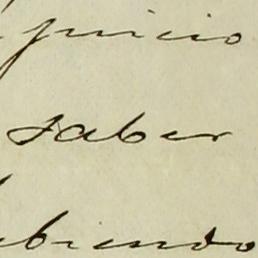 juicio
saber
biendo